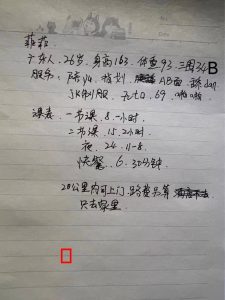 菲菲
广东人，26岁，身高163，体重93，三围34B
服务：陪洗，指划，AB面，舔dan
JK制服，69，啪啪
课表：一节课，8，一小时
二节课，15，2小时
夜，24，11-8
快餐，6，30分钟
20公里内可上门，路费另算，酒店不去
只去家里